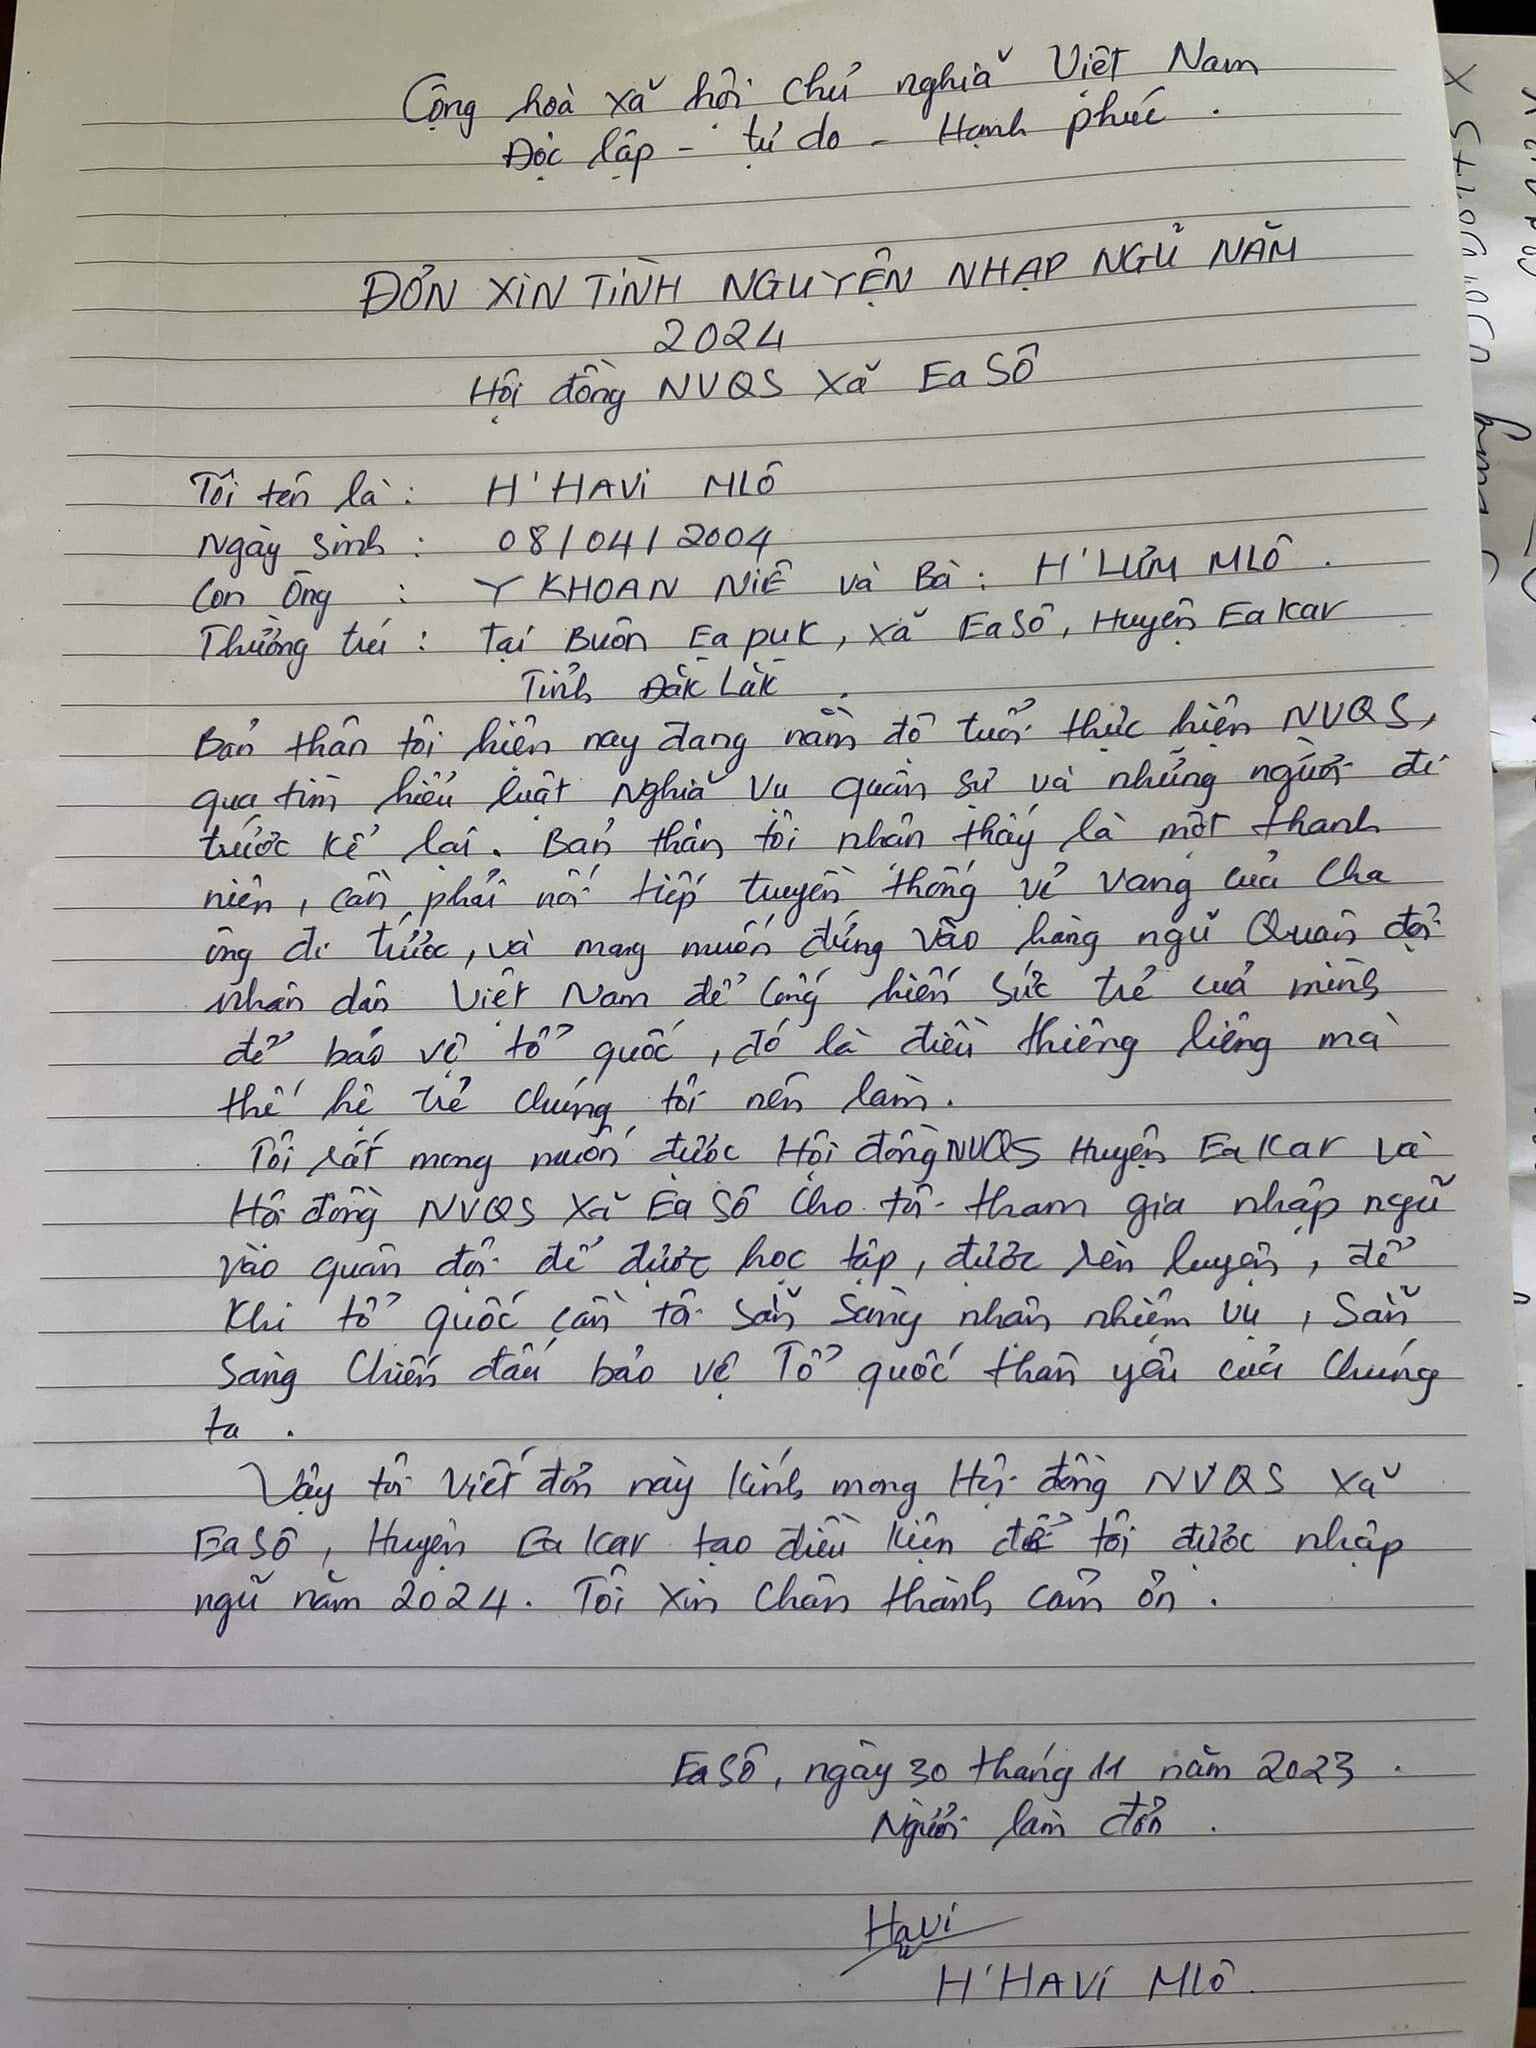 Cộng hoà xã hội chủ nghĩa Việt Nam
Độc lập - tự do - Hạnh phúc.
ĐƠN XIN TÌNH NGUYỆN NHẬP NGŨ NĂM
2024
Hội đồng NVQS xã Ea Sô
Tôi tên là: H' HAVI MLÔ
Ngày sinh: 08/04/2004
Con Ông: Y KHOAN NIÊ và Bà: H' LƯM MLÔ.
Thường trú: Tại Buôn Ea puk, xã Ea Sô, Huyện Ea Kar
Tỉnh Đăk Lăk.
Bản thân tôi hiện nay đang nằm độ tuổi thực hiện NVQS,
qua tìm hiểu luật Nghĩa vụ quân sự và những người đi
trước kể lại. Bản thân tôi nhận thấy là một thanh
niên, cần phải nối tiếp truyền thống vẻ vang của cha
ông đi trước, và mong muốn đứng vào hàng ngũ Quân đội
nhân dân Việt Nam để cống hiến sức trẻ của mình
để bảo vệ tổ quốc, đó là điều thiêng liêng mà
thế hệ trẻ chúng tôi nên làm.
Tôi rất mong muốn được Hội đồng NVQS Huyện Ea Kar và
Hội đồng NVQS Xã Ea Sô cho tôi tham gia nhập ngũ
vào quân đội để được học tập, được rèn luyện, để
khi tổ quốc cần tôi sẵn sàng nhận nhiệm vụ, sẵn
sàng chiến đấu bảo vệ Tổ quốc thân yêu của chúng
ta.
Vậy tôi viết đơn này kính mong Hội đồng NVQS xã
Ea Sô, Huyện Ea Kar tạo điều kiện để tôi được nhập
ngũ năm 2024. Tôi xin chân thành cảm ơn.
Ea Sô, ngày 30 tháng 11 năm 2023.
Người làm đơn.
Havi
H' HAVI MLÔ